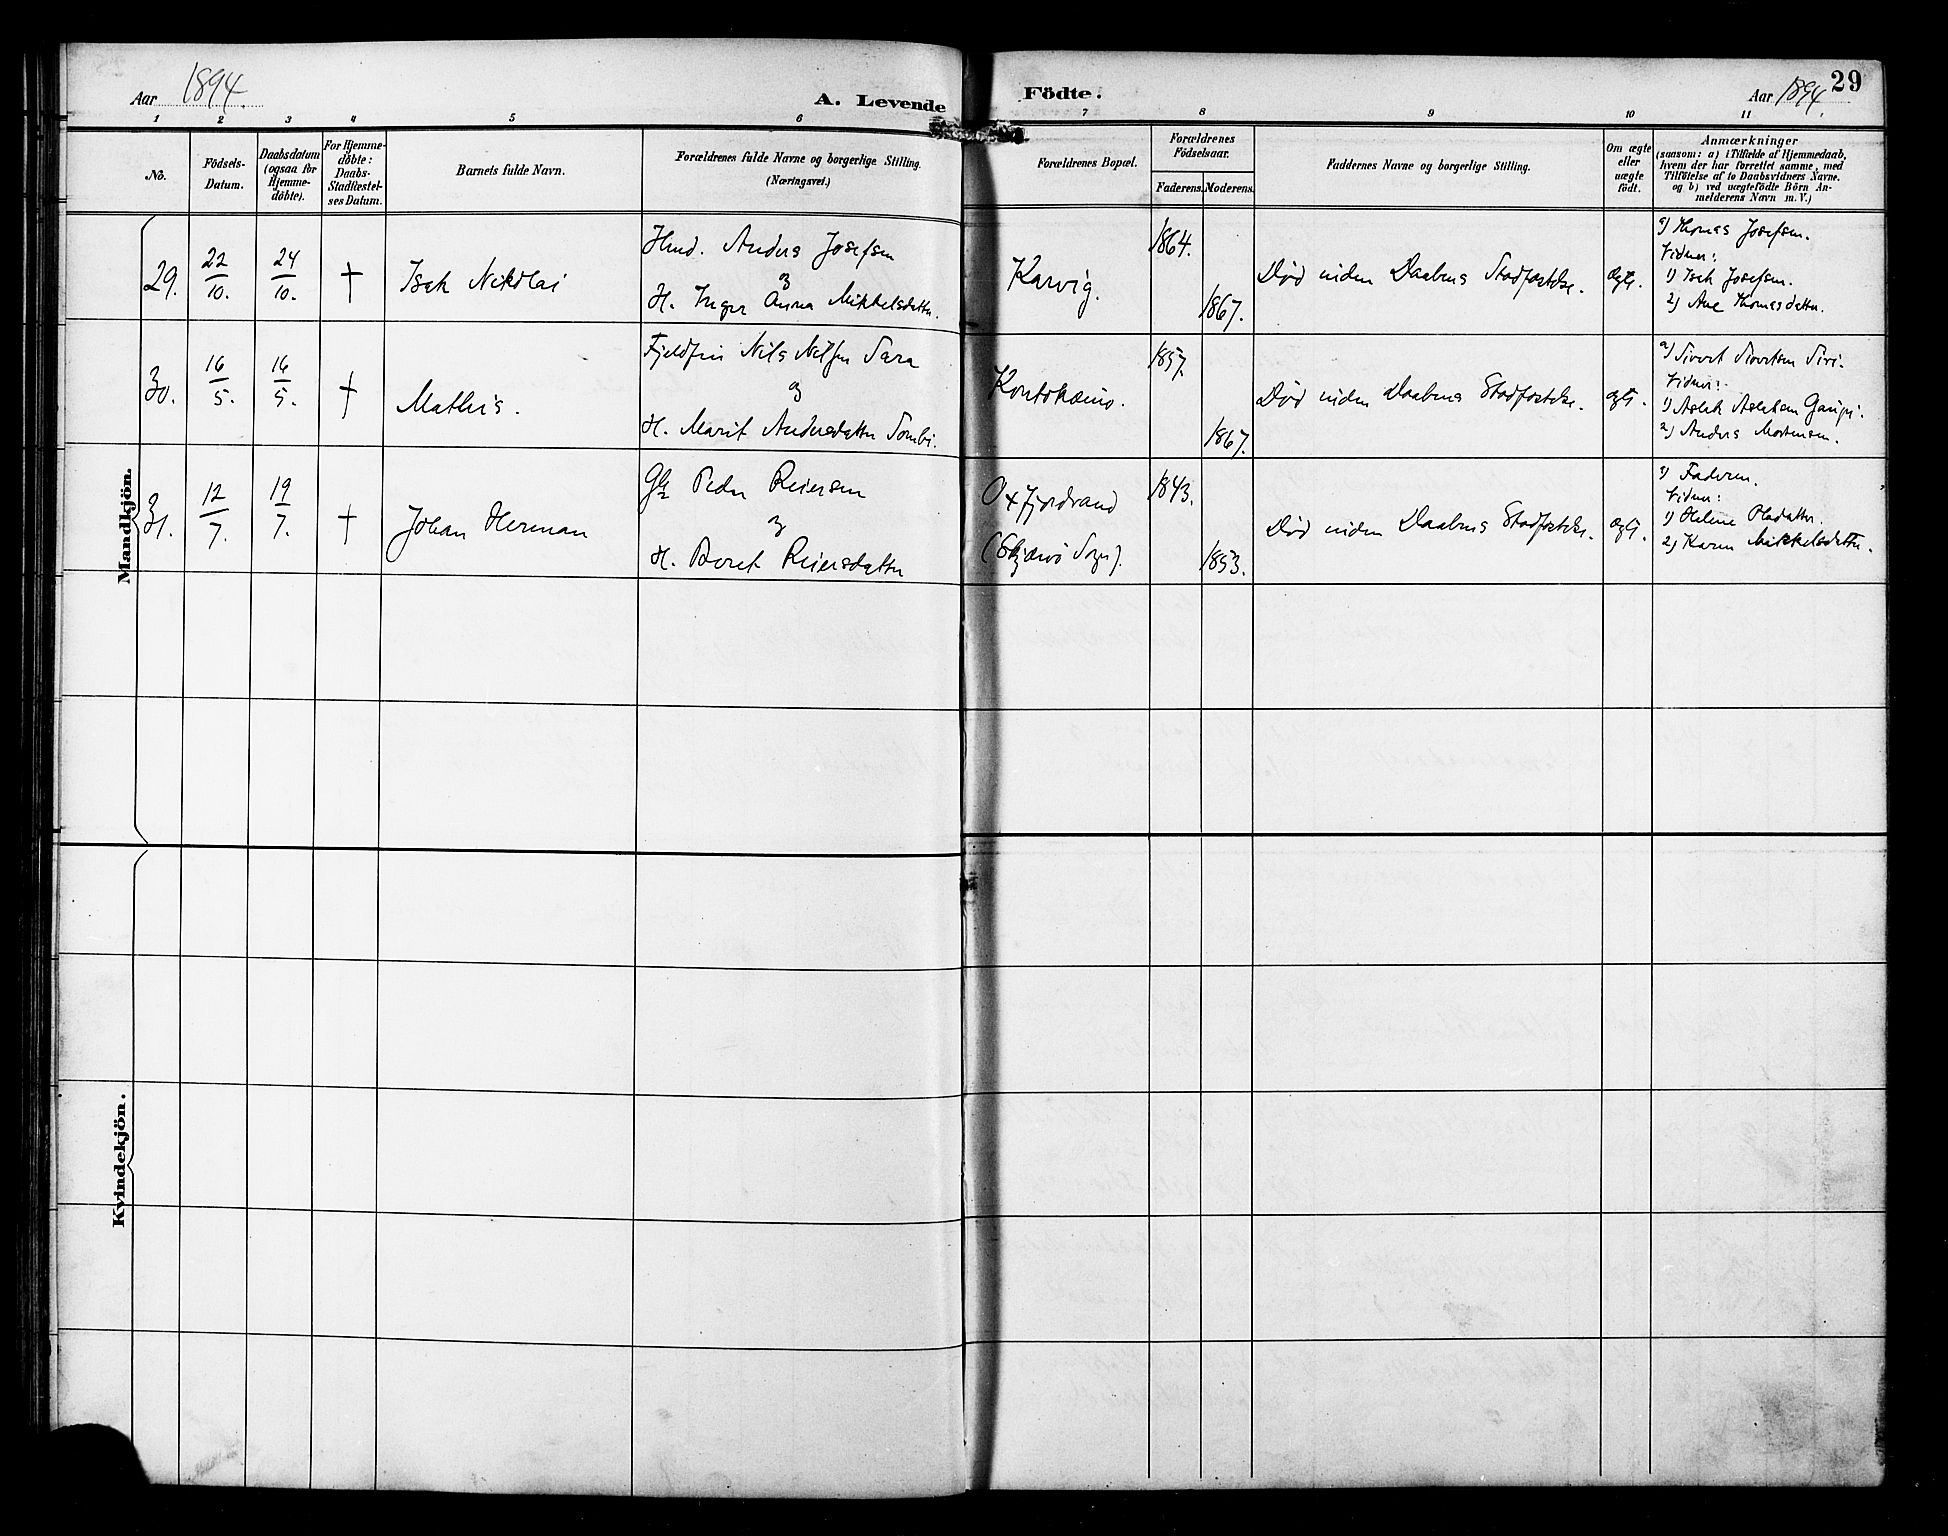 Aar 1894.
A. Levende Födte.
Aar 1894.
29
1 2 3 4 5 6 7 8 9 10 11
No.
Födsels-
Datum.
Daabsdatum
(ogsaa for
Hjemme-
döbte).
For Hjemme-
döbte:
Daabs-
Stadfæstel-
ses Datum.
Barnets fulde Navn.
Forældrenes fulde Navne og borgerlige Stilling.
(Næringsvei.)
Forældrenes Bopæl.
Forældrenes
Födselsaar.
Faderens. Moderens.
Faddernes Navne og borgerlige Stilling.
Om ægte
eller
uægte
födt.
Anmærkninger
(saasom: a) i Tilfælde af Hjemmedaab,
hvem der har forrettet samme, med
Tilföielse af to Daabsvidners Navne.
og b) ved uægtefödte Börn An-
melderens Navn m. V.)
Mandkjön.
29.
22/10.
24/10.
†
Isak Nikolai
Hmd. Anders Josefsen
og
H. Inger Anna Mikkelsdatter.
Karvig.
1864.
1867.
Död inden Daabens Stadfæstelse.
ægte.
a) Thomas Josefsen.
Vidner:
1) Isak Josefsen.
2) Ane Thomasdatter.
30.
16/5.
16/5.
†
Mathis.
Fjeldfin Nils Nilsen Sara
og
H. Marit Andersdatter Sombi.
Koutokæino.
1857.
1867.
Död inden Daabens Stadfæstelse.
ægte.
a) Sivert Sivertsen Siri.
Vidner:
1) Aslak Aslaksen Gaup.
2) Anders Mortensen.
31.
12/7.
19/7.
†
Johan Herman
Peder Reiersen
og
H. Beret Reiersdatter
Oxfjordvand
(Skjærvö Sogn).
1843.
1853.
Död inden Daabens Stadfæstelse.
ægte.
a) Faderen.
Vidner:
1) Helene Olsdatter.
2) Karen Mikkelsdatter.
Kvindekjön.